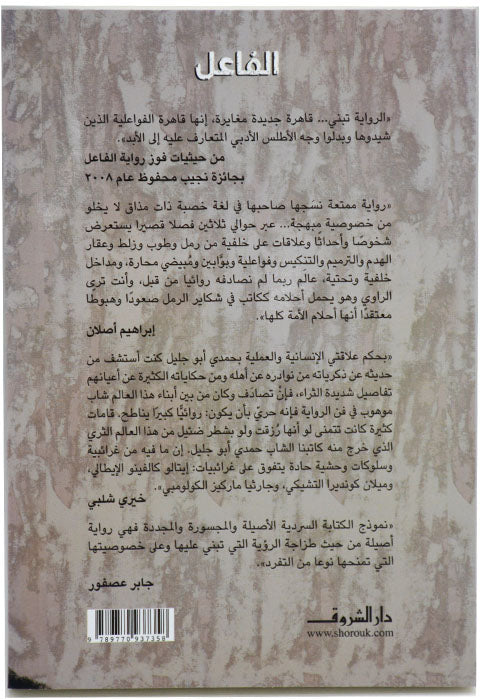 الفاعل
«الرواية تبني... قاهرة جديدة مغايرة، إنها قاهرة الفواعلية الذين
شيدوها وبدلوا وجه الأطلس الأدبي المتعارف عليه إلى الأبد».
من حيثيات فوز رواية الفاعل
بجائزة نجيب محفوظ عام ٢٠٠٨
«رواية ممتعة نسجها صاحبها في لغة خصبة ذات مذاق لا يخلو
من خصوصية مبهجة... عبر حوالي ثلاثين فصلا قصيرا يستعرض
شخوصًا وأحداثًا وعلاقات على خلفية من رمل وطوب وزلط وعقار
الهدم والترميم والتنكيس وفواعلية وبوَّابين ومُبيضي محارة، ومداخل
خلفية وتحتية، عالَم ربما لم نصادفه روائيا من قبل، وأنت ترى
الراوي وهو يحمل أحلامه ككاتب في شكاير الرمل صعودًا وهبوطًا
معتقدًا أنها أحلام الأمة كلها».
إبراهيم أصلان
«بحكم علاقتي الإنسانية والعملية بحمدي أبو جليل كنت أستشف من
حديثه عن ذكرياته من نوادره عن أهله ومن حكاياته الكثيرة عن أعيانهم
تفاصيل شديدة الثراء، فإنْ تصادَف وكان من بين أبناء هذا العالم شاب
موهوب في فن الرواية فإنه حريّ بأن يكون: روائيًّا كبيرًا يناطح. قامات
كثيرة كانت تتمنى لو أنها رُزقت ولو بشطر ضئيل من هذا العالم الثري
الذي خرج منه كاتبنا الشاب حمدي أبو جليل. إن ما فيه من غرائبية
وسلوكات وحشية حادة يتفوق على غرائبيات: إيتالو كالفينو الإيطالي،
وميلان كونديرا التشيكي، وجارثيا ماركيز الكولومبي».
خيري شلبي
«نموذج الكتابة السردية الأصيلة والمجسورة والمجددة فهي رواية
أصيلة من حيث طزاجة الرؤية التي تبني عليها وعلى خصوصيتها
التي تمنحها نوعا من التفرد».
جابر عصفور
دار الشروق
www.shorouk.com
9 789770 937358